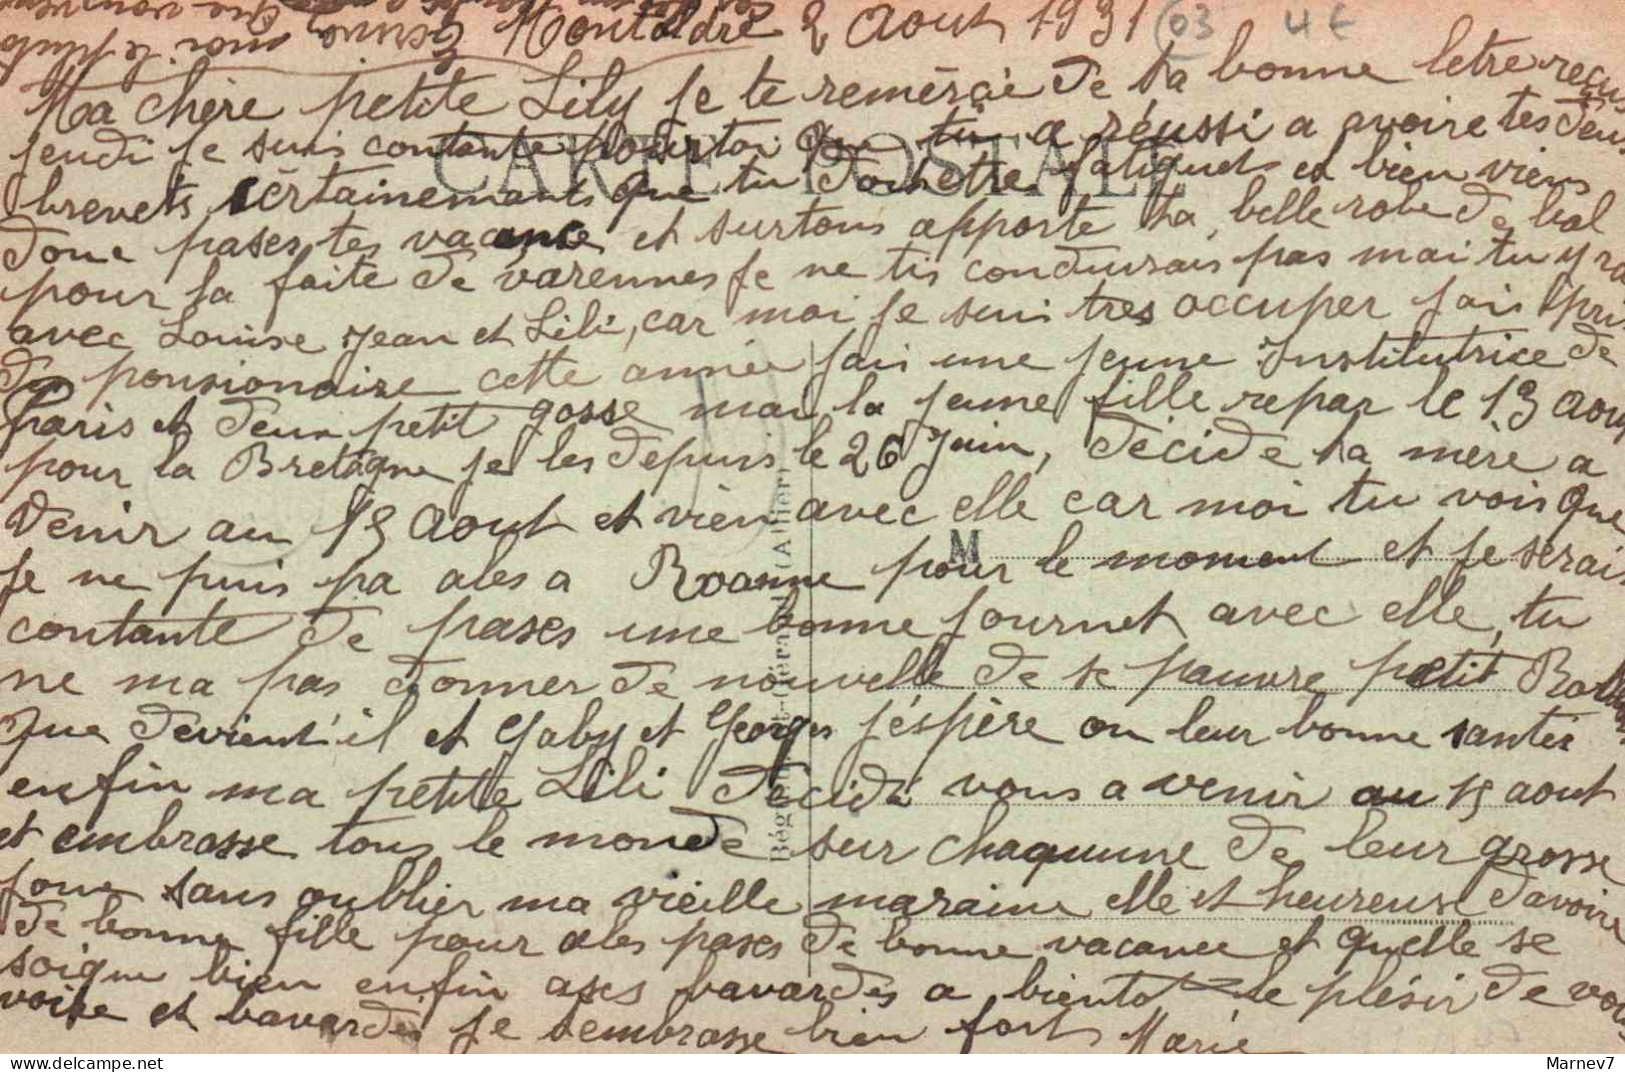 Montaldre 2 Aout 1931 (03 4 €
Ecriver moi le plus
Ma chère petite Lily je te remérçie de ta bonne letre reçus
jeudi je suis contante pour toi que tu a réussi a avoire tes deux
CARTE POSTALE
brevets, cèrtainements que tu doit etre fatiguets et bien viens
donc pases tes vacance et surtous apporte ta belle robe de bal
pour la faite de varennes je ne tis conduirais pas mai tu y ra
avec Louise Jean et Lili, car moi je suis tres occuper jais pris
du ponsionaire cette année jais une jeune Institutrice de
Paris et deux petit gosse mai la jeune fille repar le 13 Aout
pour la Bretagne je les depuis le 26 Juin, décide ta mère a
venir au 15 Aout et vien avec elle car moi tu vois que
je ne puis pa ales a Roanne pour le moment et je serais
M
contante de pases une bonne journet avec elle, tu
ne ma pas donner de nouvelle de se pauvre petit
que devient'il et Gaby et Georges j'éspère on leur bonne santér
enfin ma petite Lili décidé vous a venir au 15 aout
et embrasse tous le monde sur chaquune de leur grosse
joue sans oublier ma vieille maraine elle et heureuse davoire
de bonne fille pour ales pases de bonne vacance et quelle se
soigne bien enfin ases bavardés a bientot le plésir de vous
voire et bavardés je tembrasse bien fort Marie
(Allier)
Marnev7